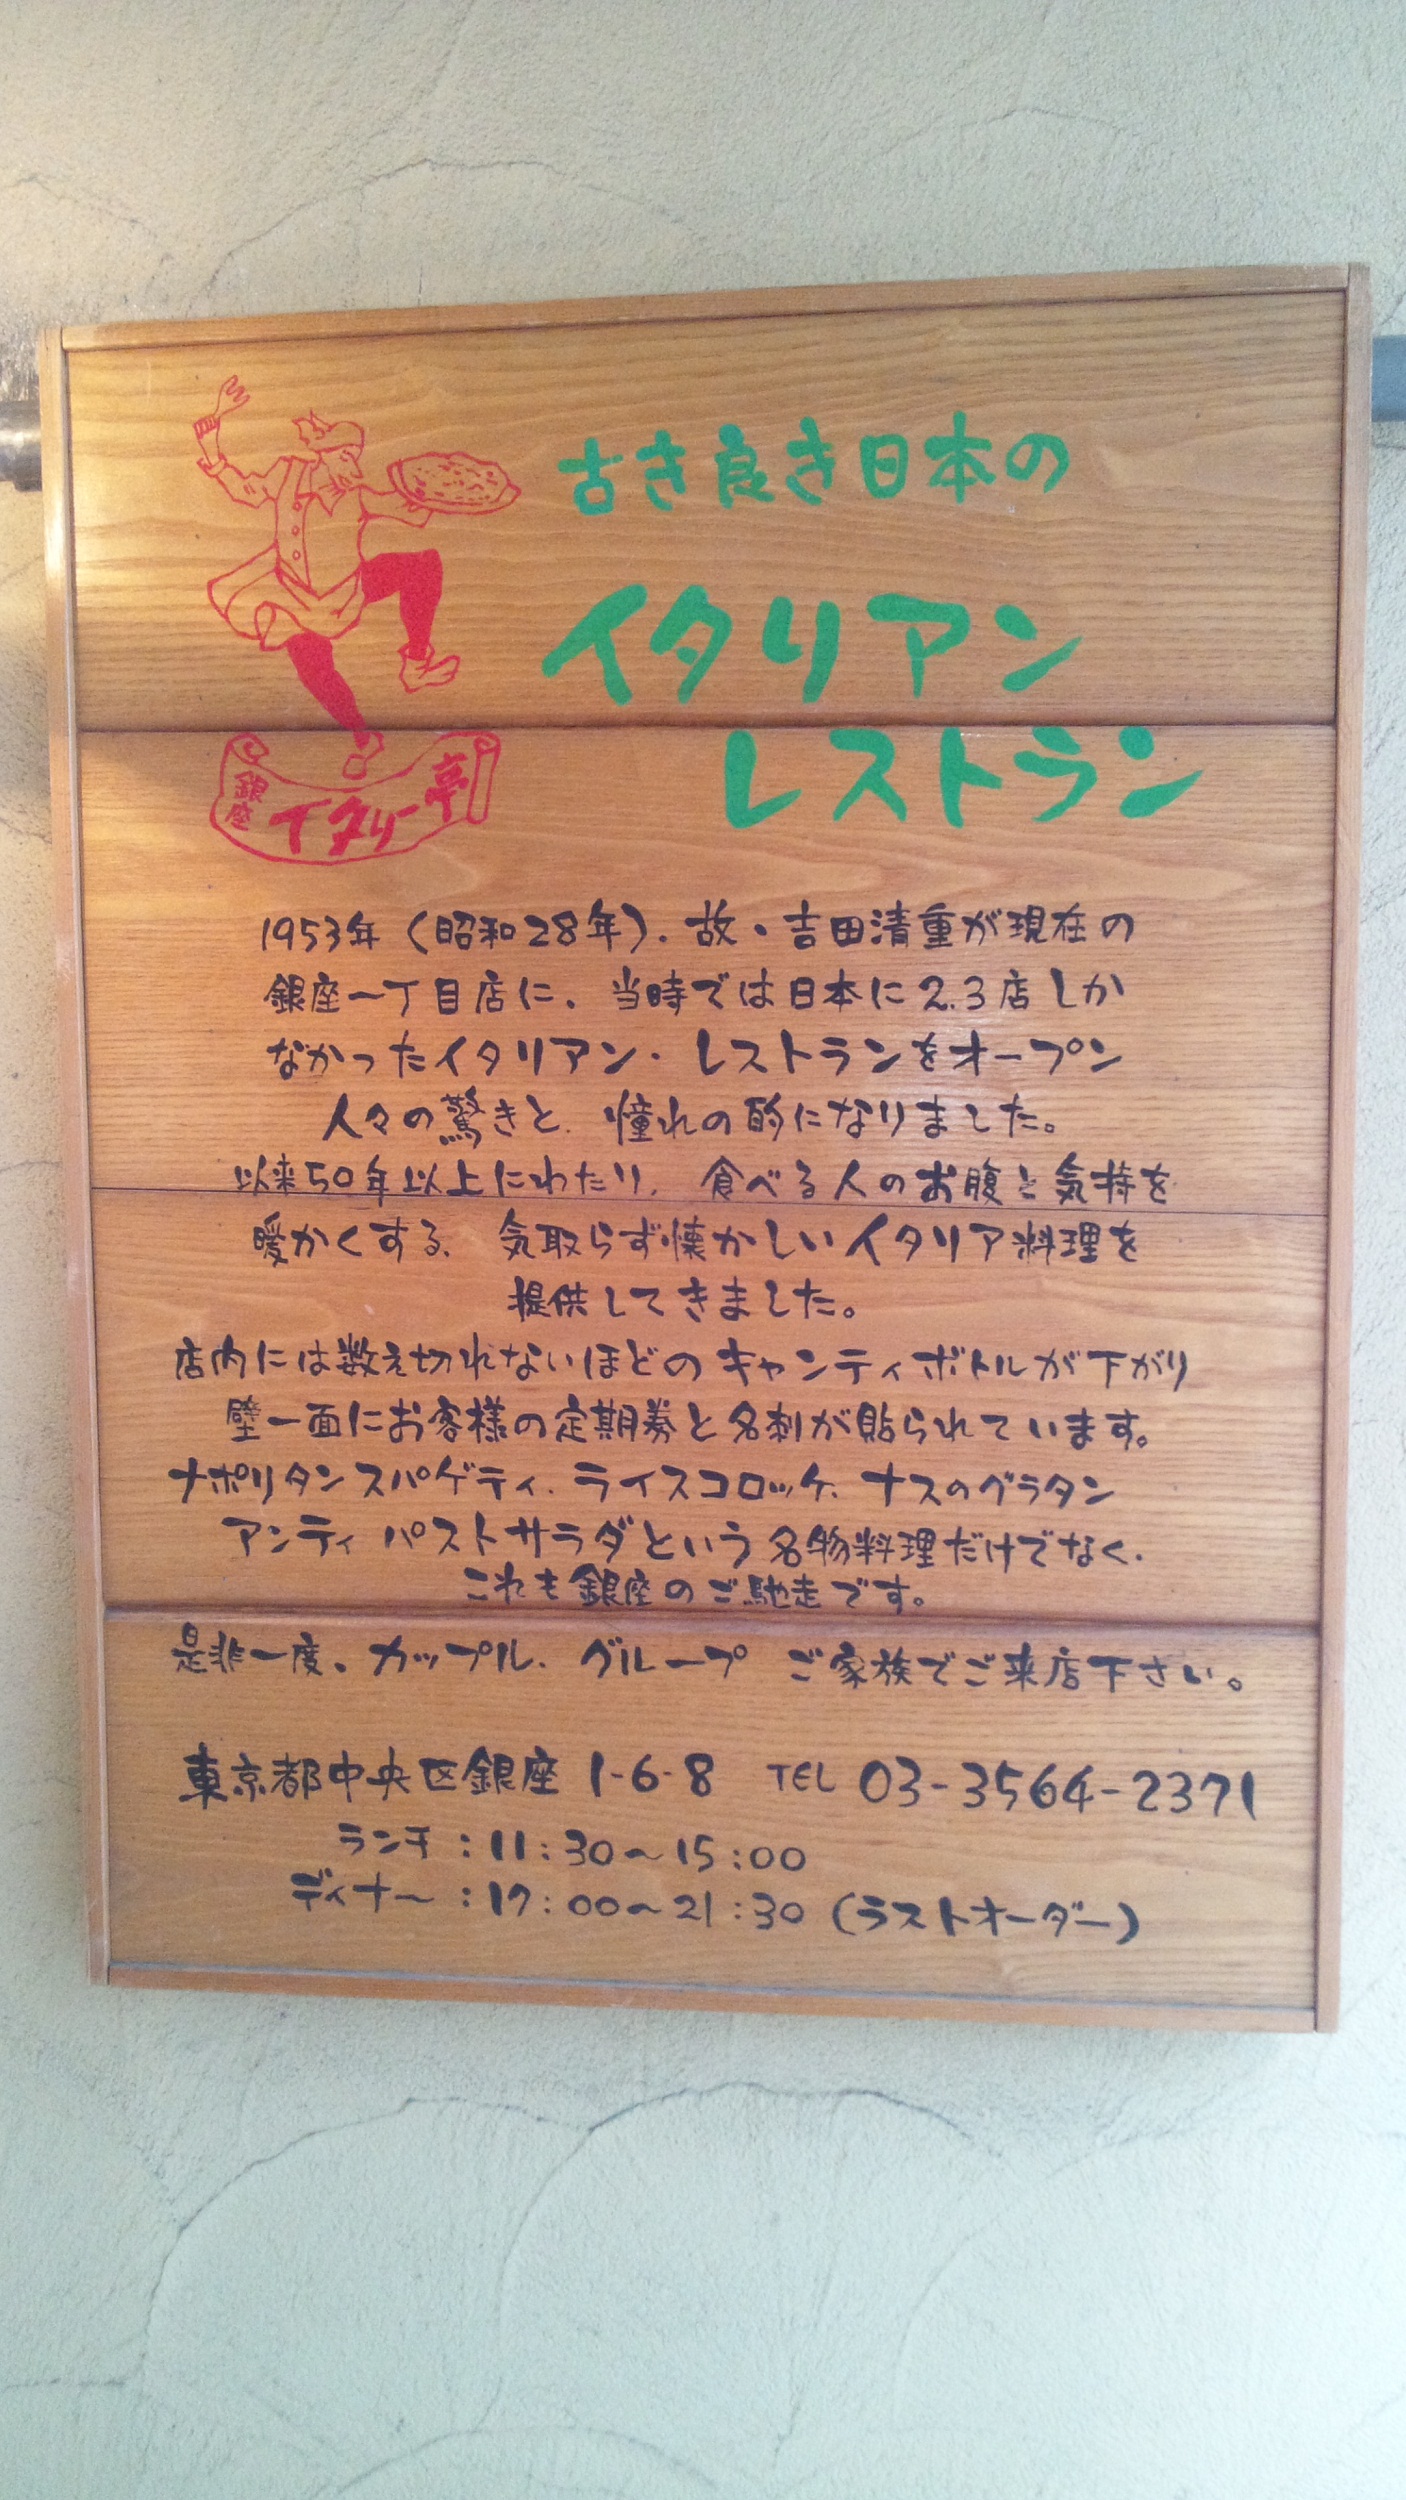 古き良き日本の
イタリアン
レストラン
銀座
イタリー亭
1953年(昭和28年)、故・吉田清重が現在の
銀座一丁目店に、当時では日本に2.3店しか
なかったイタリアン・レストランをオープン
人々の驚きと、憧れの的になりました。
以来50年以上にわたり、食べる人のお腹と気持を
暖かくする、気取らず懐かしいイタリア料理を
提供してきました。
店内には数え切れないほどのキャンティボトルが下がり
壁一面にお客様の定期券と名刺が貼られています。
ナポリタンスパゲティ、ライスコロッケ、ナスのグラタン
アンティパストサラダという名物料理だけでなく、
これも銀座のご馳走です。
是非一度、カップル、グループ ご家族でご来店下さい。
東京都中央区銀座 1-6-8 TEL 03-3564-2371
ランチ:11:30～15:00
ディナー:17:00～21:30(ラストオーダー)